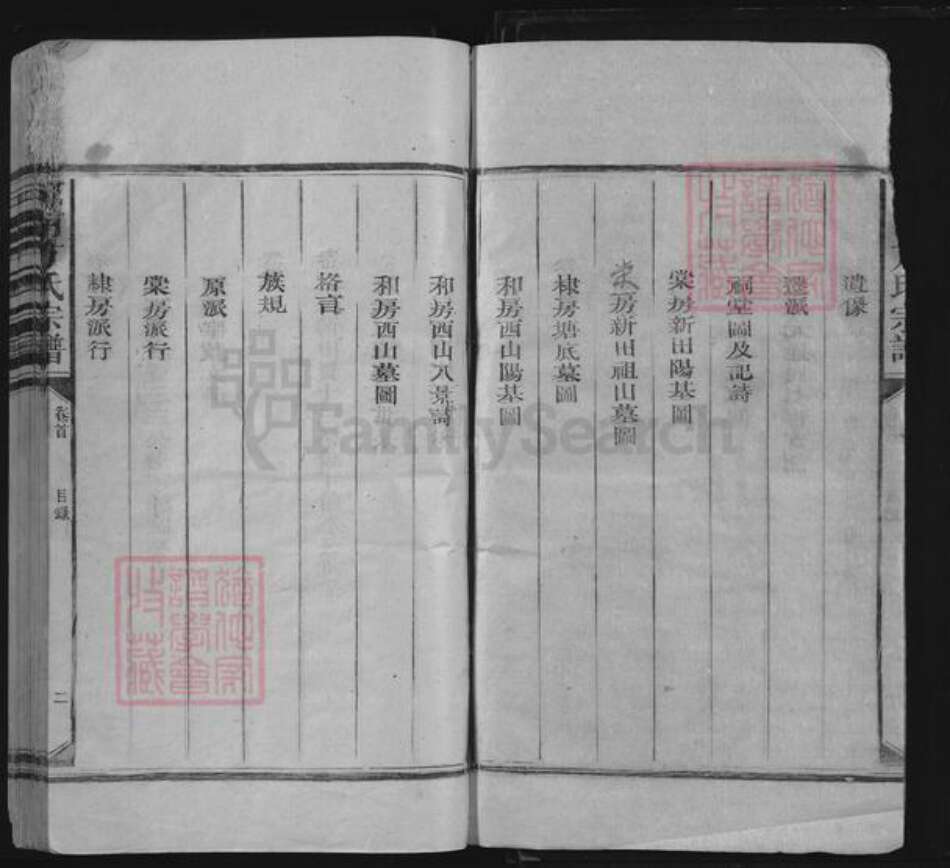 遺像
遷派
祠堂圖及記詩
棠房新田陽基圖
棠房新田祖山墓圖
棣房塘底墓圖
和房西山陽基圖
和房西山八景詩
和房西山墓圖
格言
族規
原派
棠房派行
棣房派行
氏宗譜
卷首
目錄
二
氏宗譜
FamilySearch